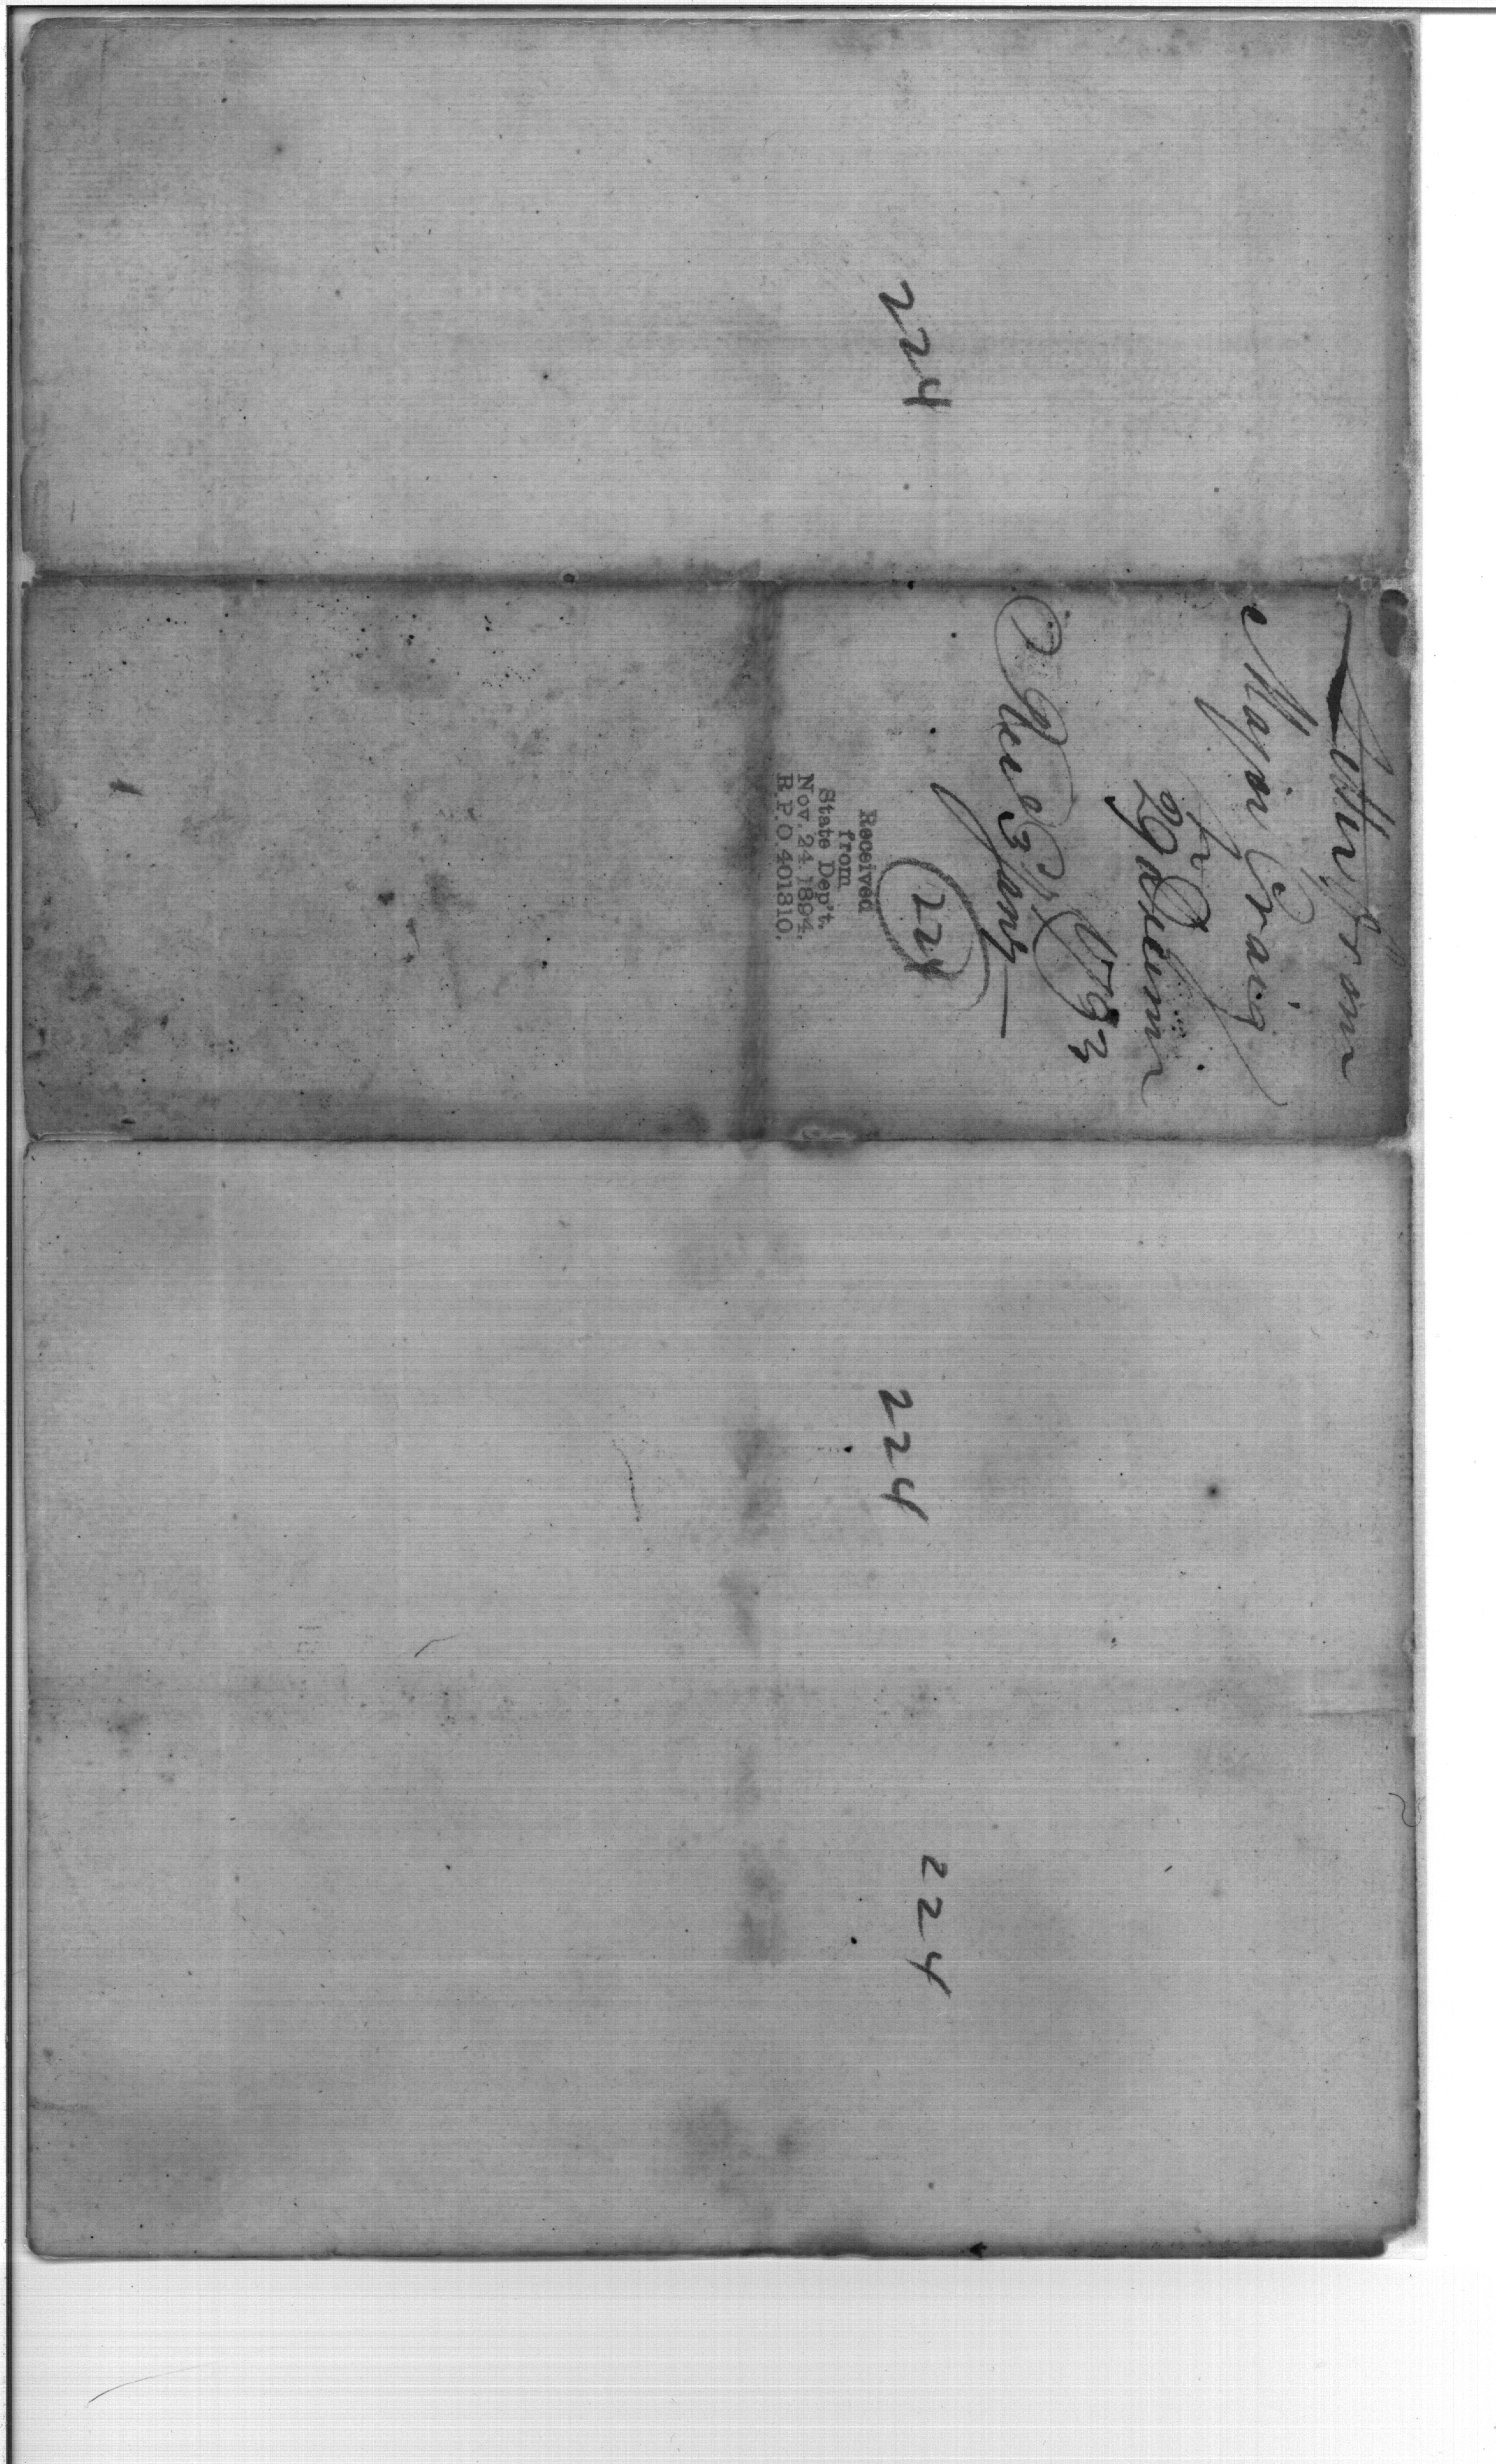 224
Letter from
Major Craig
29 Decemr
1783
Recd 3 Jany
224
Received
from
State Dep't.
Nov. 24, 1894.
R.P.O. 401310.
224
224